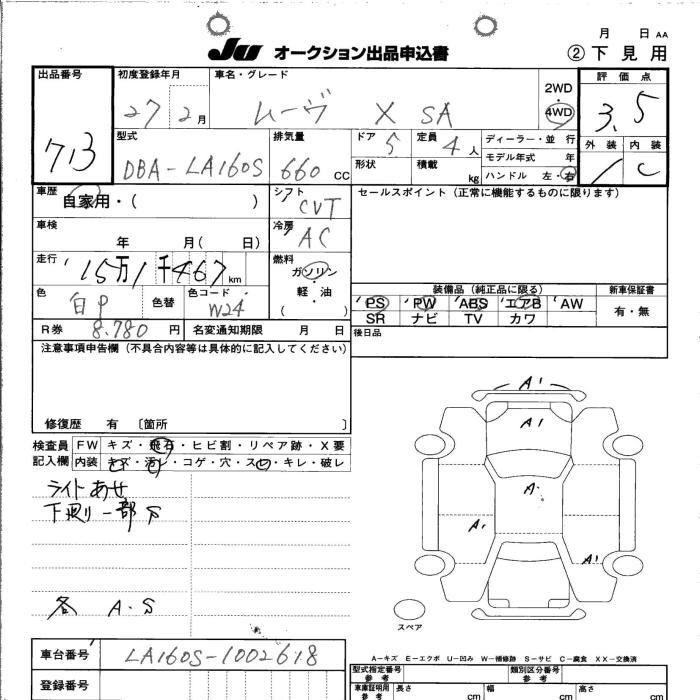 月 日 AA
JU オークション出品申込書 ②下見用
出品番号 713
初度登録年月 27 2月
車名・グレード ムーヴ X SA
2WD
4WD
評価点 3.5
外装 内装 C
型式 DBA-LA160S
排気量 660 CC
ドア 5
定員 4人
形状
積載 kg
ディーラー・並行
モデル年式 年
ハンドル 左・右
車歴 自家用・( )
シフト CVT
セールスポイント(正常に機能するものに限ります)
車検 年 月( 日)
冷房 AC
走行 15万1千467km
燃料 ガソリン・軽・油 ( )
色 白P 色替
色コード W24
装備品(純正品に限る)
PS PW ABS エアB AW
SR ナビ TV カワ
新車保証書 有・無
R券 8.780 円
名変通知期限 月 日
後日品
注意事項申告欄(不具合内容等は具体的に記入してください)
修復歴 有 〔箇所 〕
検査員記入欄
FW キズ・飛石・ヒビ割・リペア跡・X要
内装 キズ・汚れ・コゲ・穴・スレ・キレ・破レ
ライトあせ
下廻り一部S
各 A.S
A1
A1
A
A1
A1
スペア
A-キズ E-エクボ U-凹み W-補修跡 S-サビ C-腐食 XX-交換済
車台番号 LA160S-1002618
登録番号
型式指定番号 参考
類別区分番号 参考
車庫証明用 参考
長さ cm
幅 cm
高さ cm